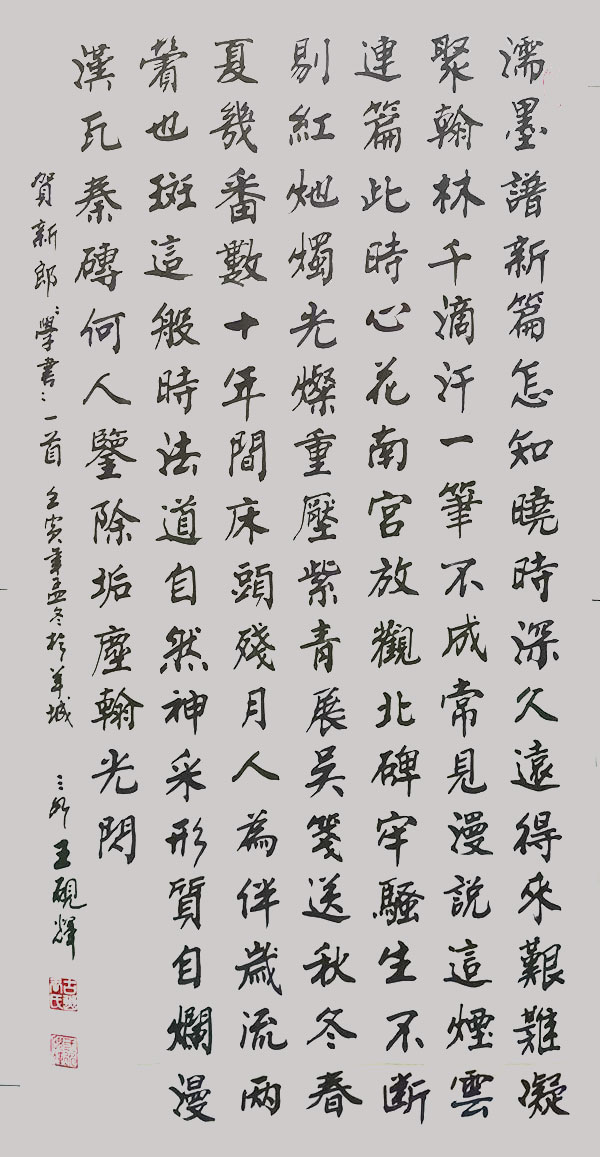 濡墨譜新篇怎知曉時深久遠得来艱難凝
聚翰林千滴汗一筆不成常見漫説這煙雲
連篇此時心花南宮放觀北碑牢騷生不断
剔紅灺燭光燦重壓紫青展吴箋送秋冬春
夏幾番數十年間床頭殘月人為伴歲流兩
鬢也斑這般時法道自然神采形質自爛漫
漢瓦秦磚何人鑒除垢塵翰光閃
賀新郎:學書:一首 壬寅年孟冬於羊城 王硯輝